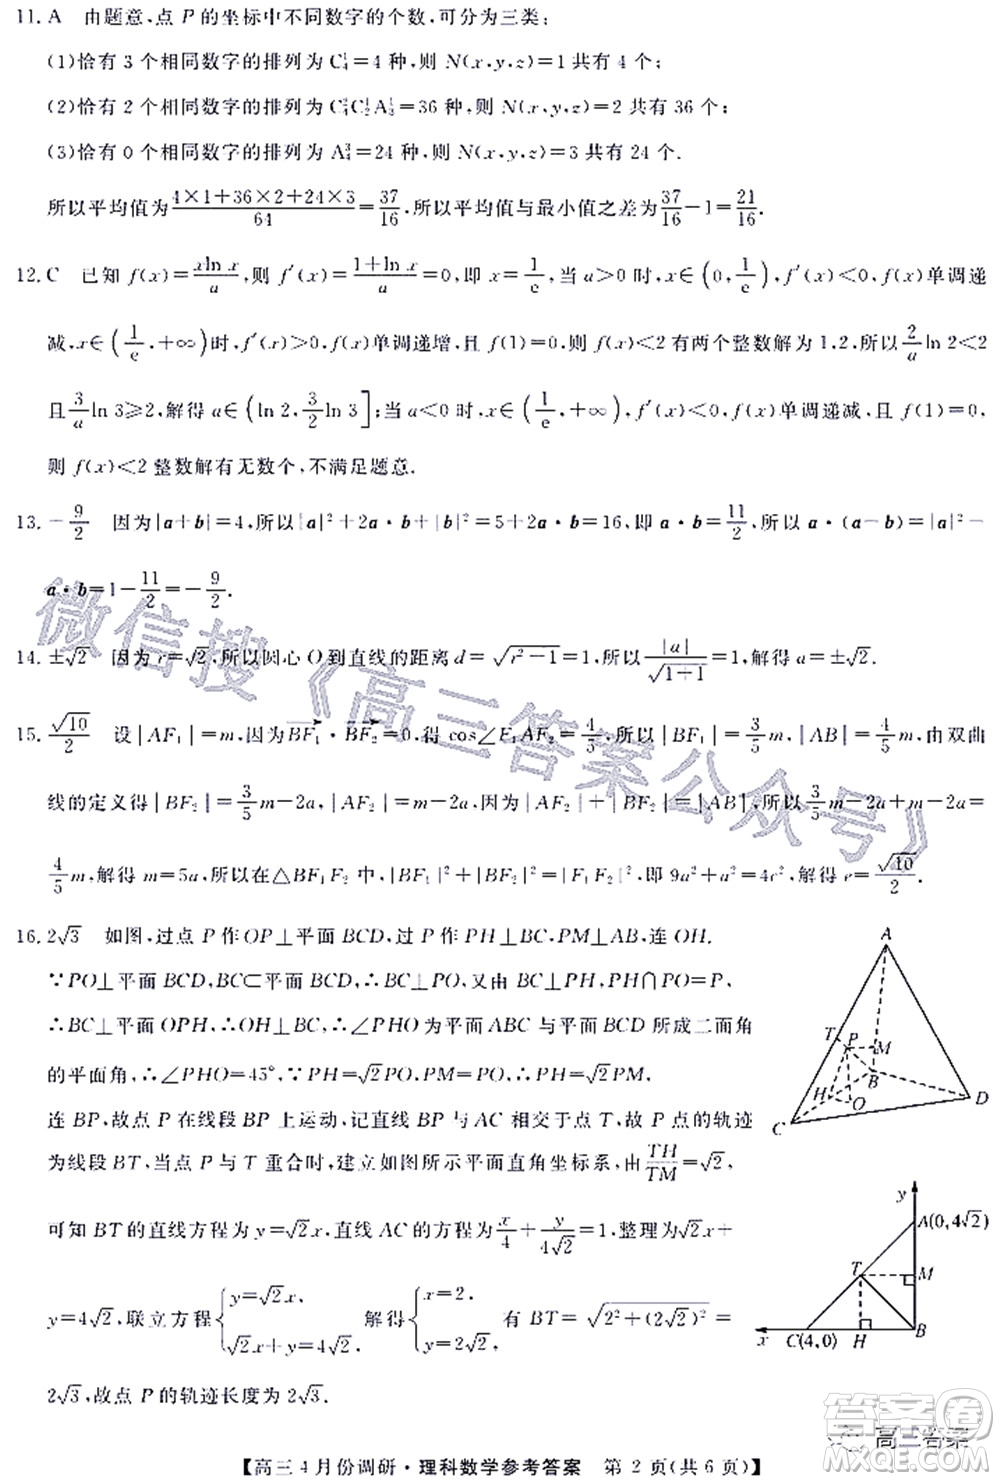 11. A 由题意,点 P 的坐标中不同数字的个数,可分为三类;
(1)恰有 3 个相同数字的排列为 C₄¹=4 种,则 N(x,y,z)=1 共有 4 个;
(2)恰有 2 个相同数字的排列为 C₄²C₂¹A₃¹=36 种,则 N(x,y,z)=2 共有 36 个;
(3)恰有 0 个相同数字的排列为 A₄³=24 种,则 N(x,y,z)=3 共有 24 个.
所以平均值为(4×1+36×2+24×3)/64=37/16,所以平均值与最小值之差为37/16-1=21/16.
12. C 已知 f(x)=xln x/a,则 f′(x)=(1+ln x)/a=0,即 x=1/e,当 a>0 时,x∈(0,1/e),f′(x)<0,f(x)单调递
减,x∈(1/e,+∞)时,f′(x)>0,f(x)单调递增,f(1)=0,所以 f(x)<2 有两个整数解为 1,2,所以2/a ln 2<2
且3/a ln 3≥2,解得 a∈(ln 2,3/2 ln 3];当 a<0 时,x∈(1/e,+∞),f′(x)<0,f(x)单调递减,且 f(1)=0,
则 f(x)<2 整数解有无数个,不满足题意.
13. -9/2 因为|a+b|=4,所以|a|²+2a·b+|b|²=5+2a·b=16,即 a·b=11/2,所以 a·(a-b)=|a|²-
a·b=1-11/2=-9/2.
14. ±√2 因为 r=√2,所以圆心 O 到直线的距离 d=√(r²-1)=1,所以|a|/√(1+1)=1,解得 a=±√2.
15. √10/2 设|AF₁|=m,因为BF₁·BF₂=0,得 cos∠F₁AF₂=4/5,所以|BF₁|=3/5m,|AB|=4/5m,由双曲
线的定义得|BF₂|=3/5m-2a,|AF₂|=m-2a,|AF₂|+|BF₂|=|AB|,所以3/5m-2a+m-2a=
4/5m,解得 m=5a,所以在△BF₁F₂ 中,|BF₁|²+|BF₂|²=|F₁F₂|²,即 9a²+a²=4c²,解得 e=√10/2.
16. 2√3 如图,过点 P 作 OP⊥平面 BCD,过 P 作 PH⊥BC,PM⊥AB,连 OH.
∵PO⊥平面 BCD,BC⊂平面 BCD,∴BC⊥PO,又由 BC⊥PH,PH∩PO=P,
∴BC⊥平面 OPH,∴OH⊥BC,∴∠PHO 为平面 ABC 与平面 BCD 所成二面角
的平面角,∴∠PHO=45°,∴PH=√2PO,PM=PO,∴PH=√2PM,
连 BP,故点 P 在线段 BP 上运动,记直线 BP 与 AC 相交于点 T,故 P 点的轨迹
为线段 BT,当点 P 与 T 重合时,建立如图所示平面直角坐标系,由TH/TM=√2,
可知 BT 的直线方程为 y=√2x,直线 AC 的方程为x/4+y/4√2=1,整理为√2x+
y=4√2,联立方程{y=√2x, √2x+y=4√2, 解得{x=2, y=2√2, 有 BT=√(2²+(2√2)²)=
2√3,故点 P 的轨迹长度为 2√3.
A
T
P
M
H
B
O
C
D
y
A(0,4√2)
T
M
x
C(4,0)
H
B
微信搜《高三答案公众号》
答案卷
高三答案
MXQE.COM
【高三 4 月份调研·理科数学参考答案 第 2 页(共 6 页)】